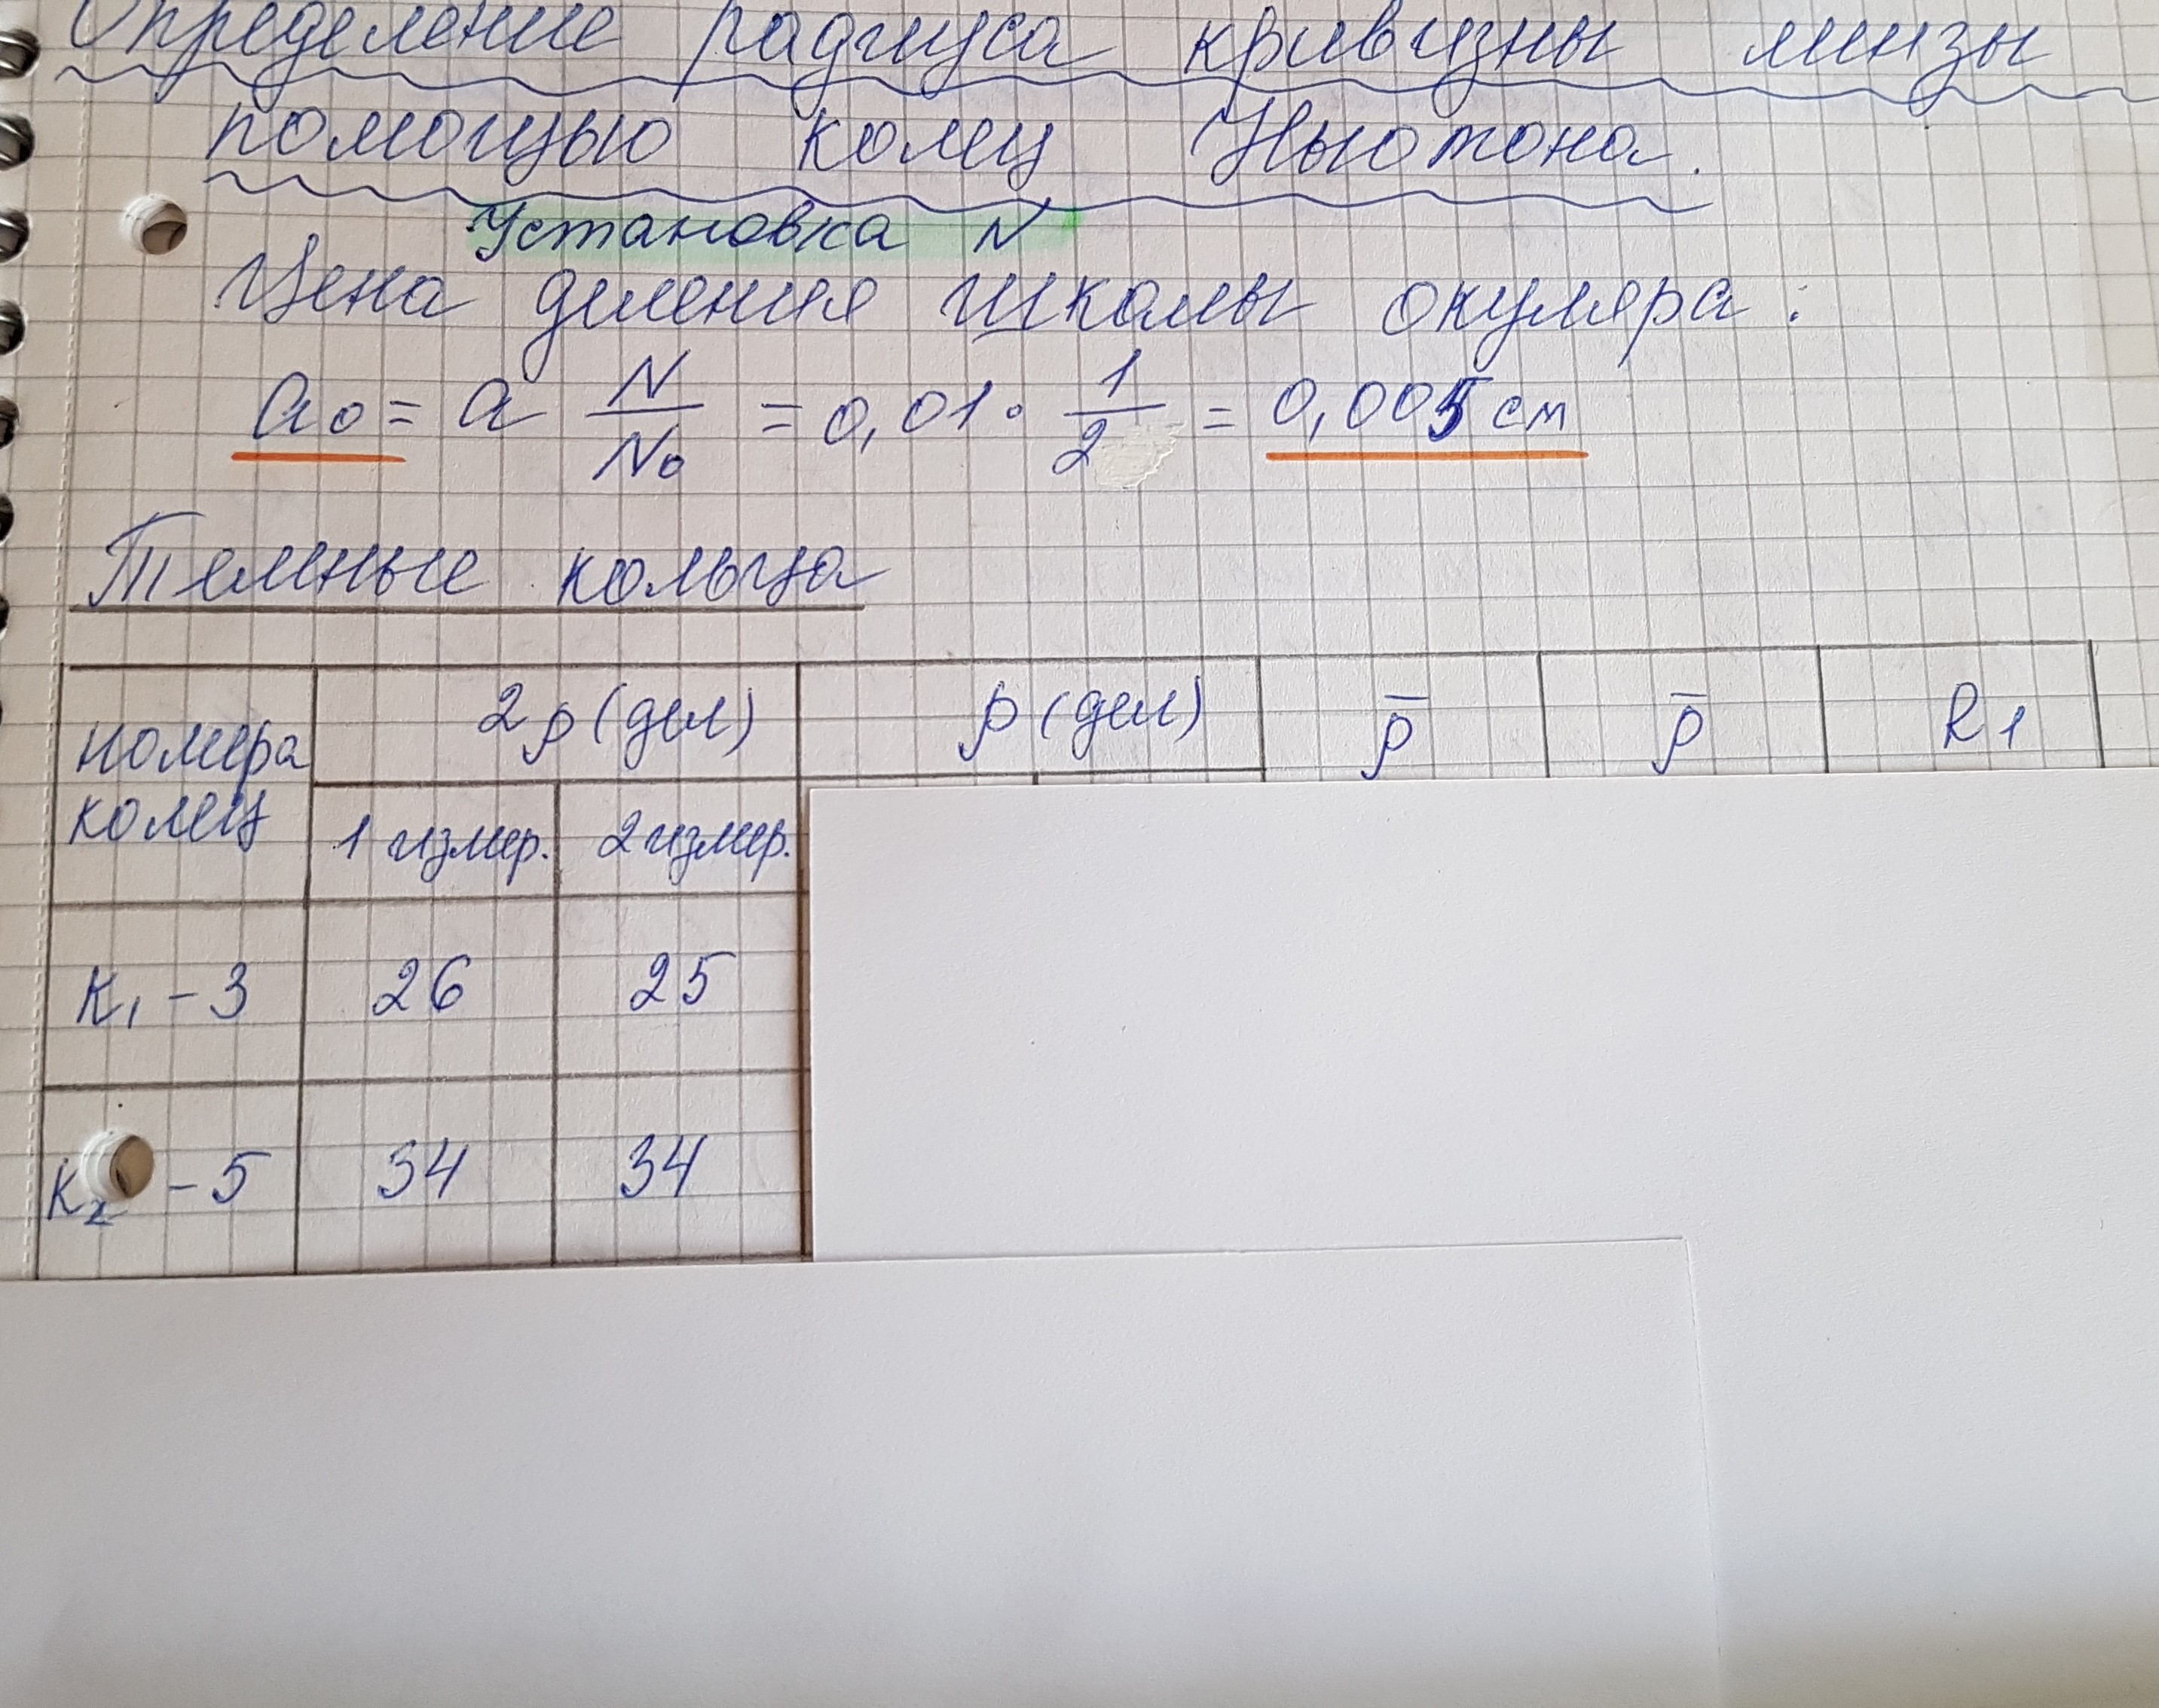 Определение радиуса кривизны линзы
помощью колец Ньютона.
Установка N
Цена деления шкалы окуляра:
a₀ = a N/N₀ = 0,01 · 1/2 = 0,005 см
Темные кольца
номера колец 2ρ (дел) ρ (дел) ρ̄ ρ̄ R1
1 измер. 2 измер.
К₁ - 3 26 25
К₂ - 5 34 34